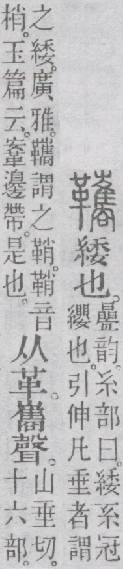 䪎緌也。曡韵。糸部曰。緌系冠纓也。引伸凡垂者謂
之緌。廣雅。䪎謂之鞘。鞘音梢。玉篇云。鞌邊帶。是也。从革巂聲。山垂切。十六部。